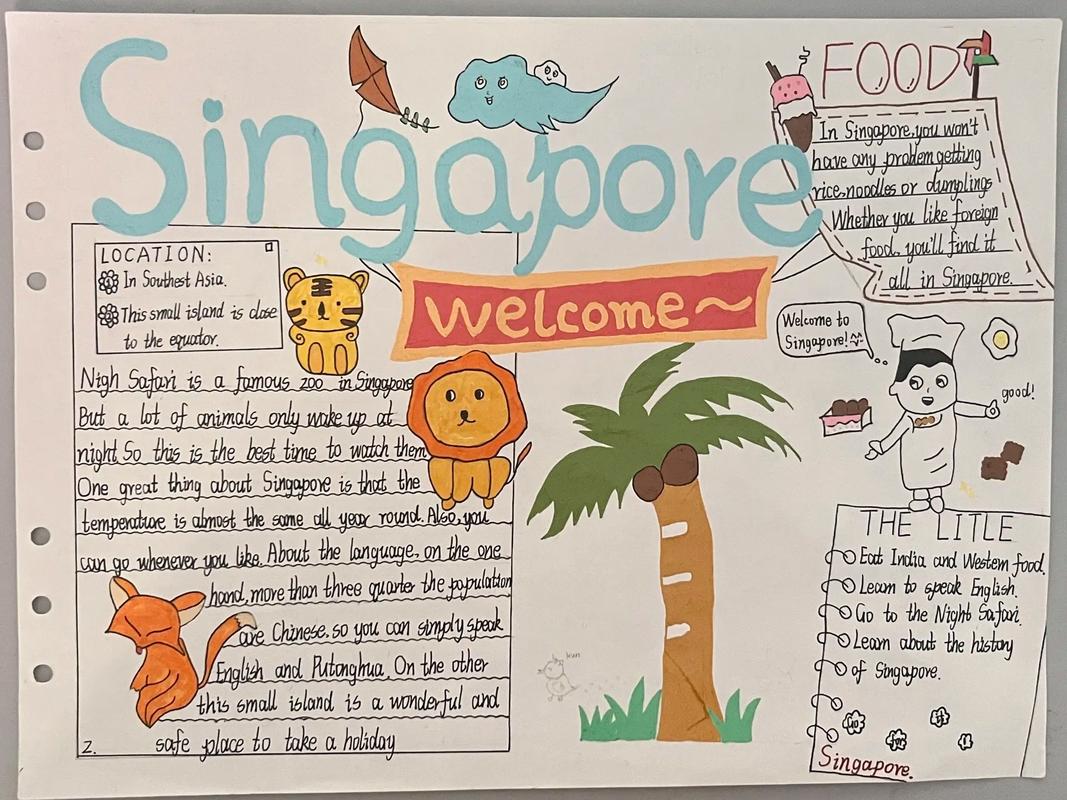 Singapore
Welcome~
LOCATION:
In Southest Asia.
This small island is close
to the equator.
Nigh Safari is a famous zoo in Singapore
But a lot of animals only wake up at
night So this is the best time to watch them
One great thing about Singapore is that the
temperature is almost the same all year round. Also, you
can go whenever you like. About the language, on the one
hand, more than three quarter the population
are Chinese, so you can simply speak
English and Putonghua. On the other
this small island is a wonderful and
safe place to take a holiday
2.
FOOD
In Singapore, you won't
have any problem getting
rice, noodles or dumplings
Whether you like foreign
food, you'll find it
all in Singapore.
Welcome to
Singapore!
good!
kun
THE LITLE
Eat India and Western food.
Learn to speak English.
Go to the Night Safari.
Learn about the history
of Singapore.
Go
for
it
Singapore.